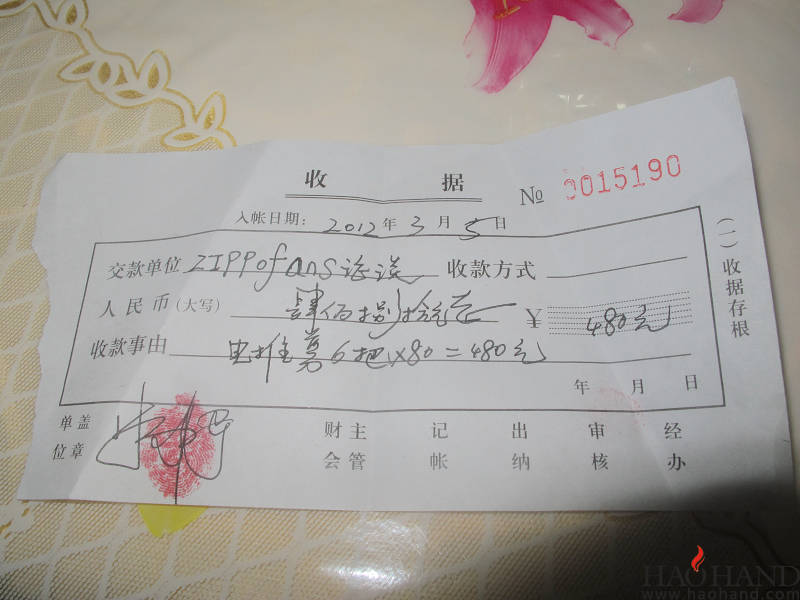 收 据
№ 0015190
入帐日期: 2012 年 3 月 5 日
交款单位 ZIPPofans 收款方式
人民币(大写) 肆佰捌拾元 ¥ 480元
收款事由 电推剪6把X80=480元
年 月 日
(一)收据存根
单位盖章
财会主管 记帐 出纳 审核 经办
HAOHAND
www.haohand.com